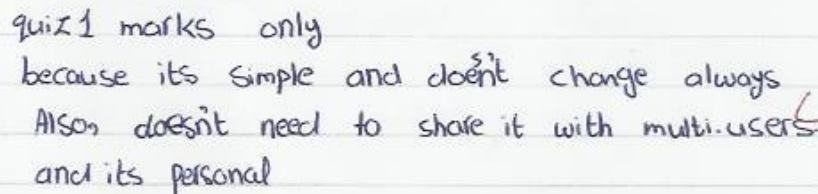 quiz 1 marks only
because its simple and doesn't change always
Also, doesn't need to share it with multi-users
and its personal